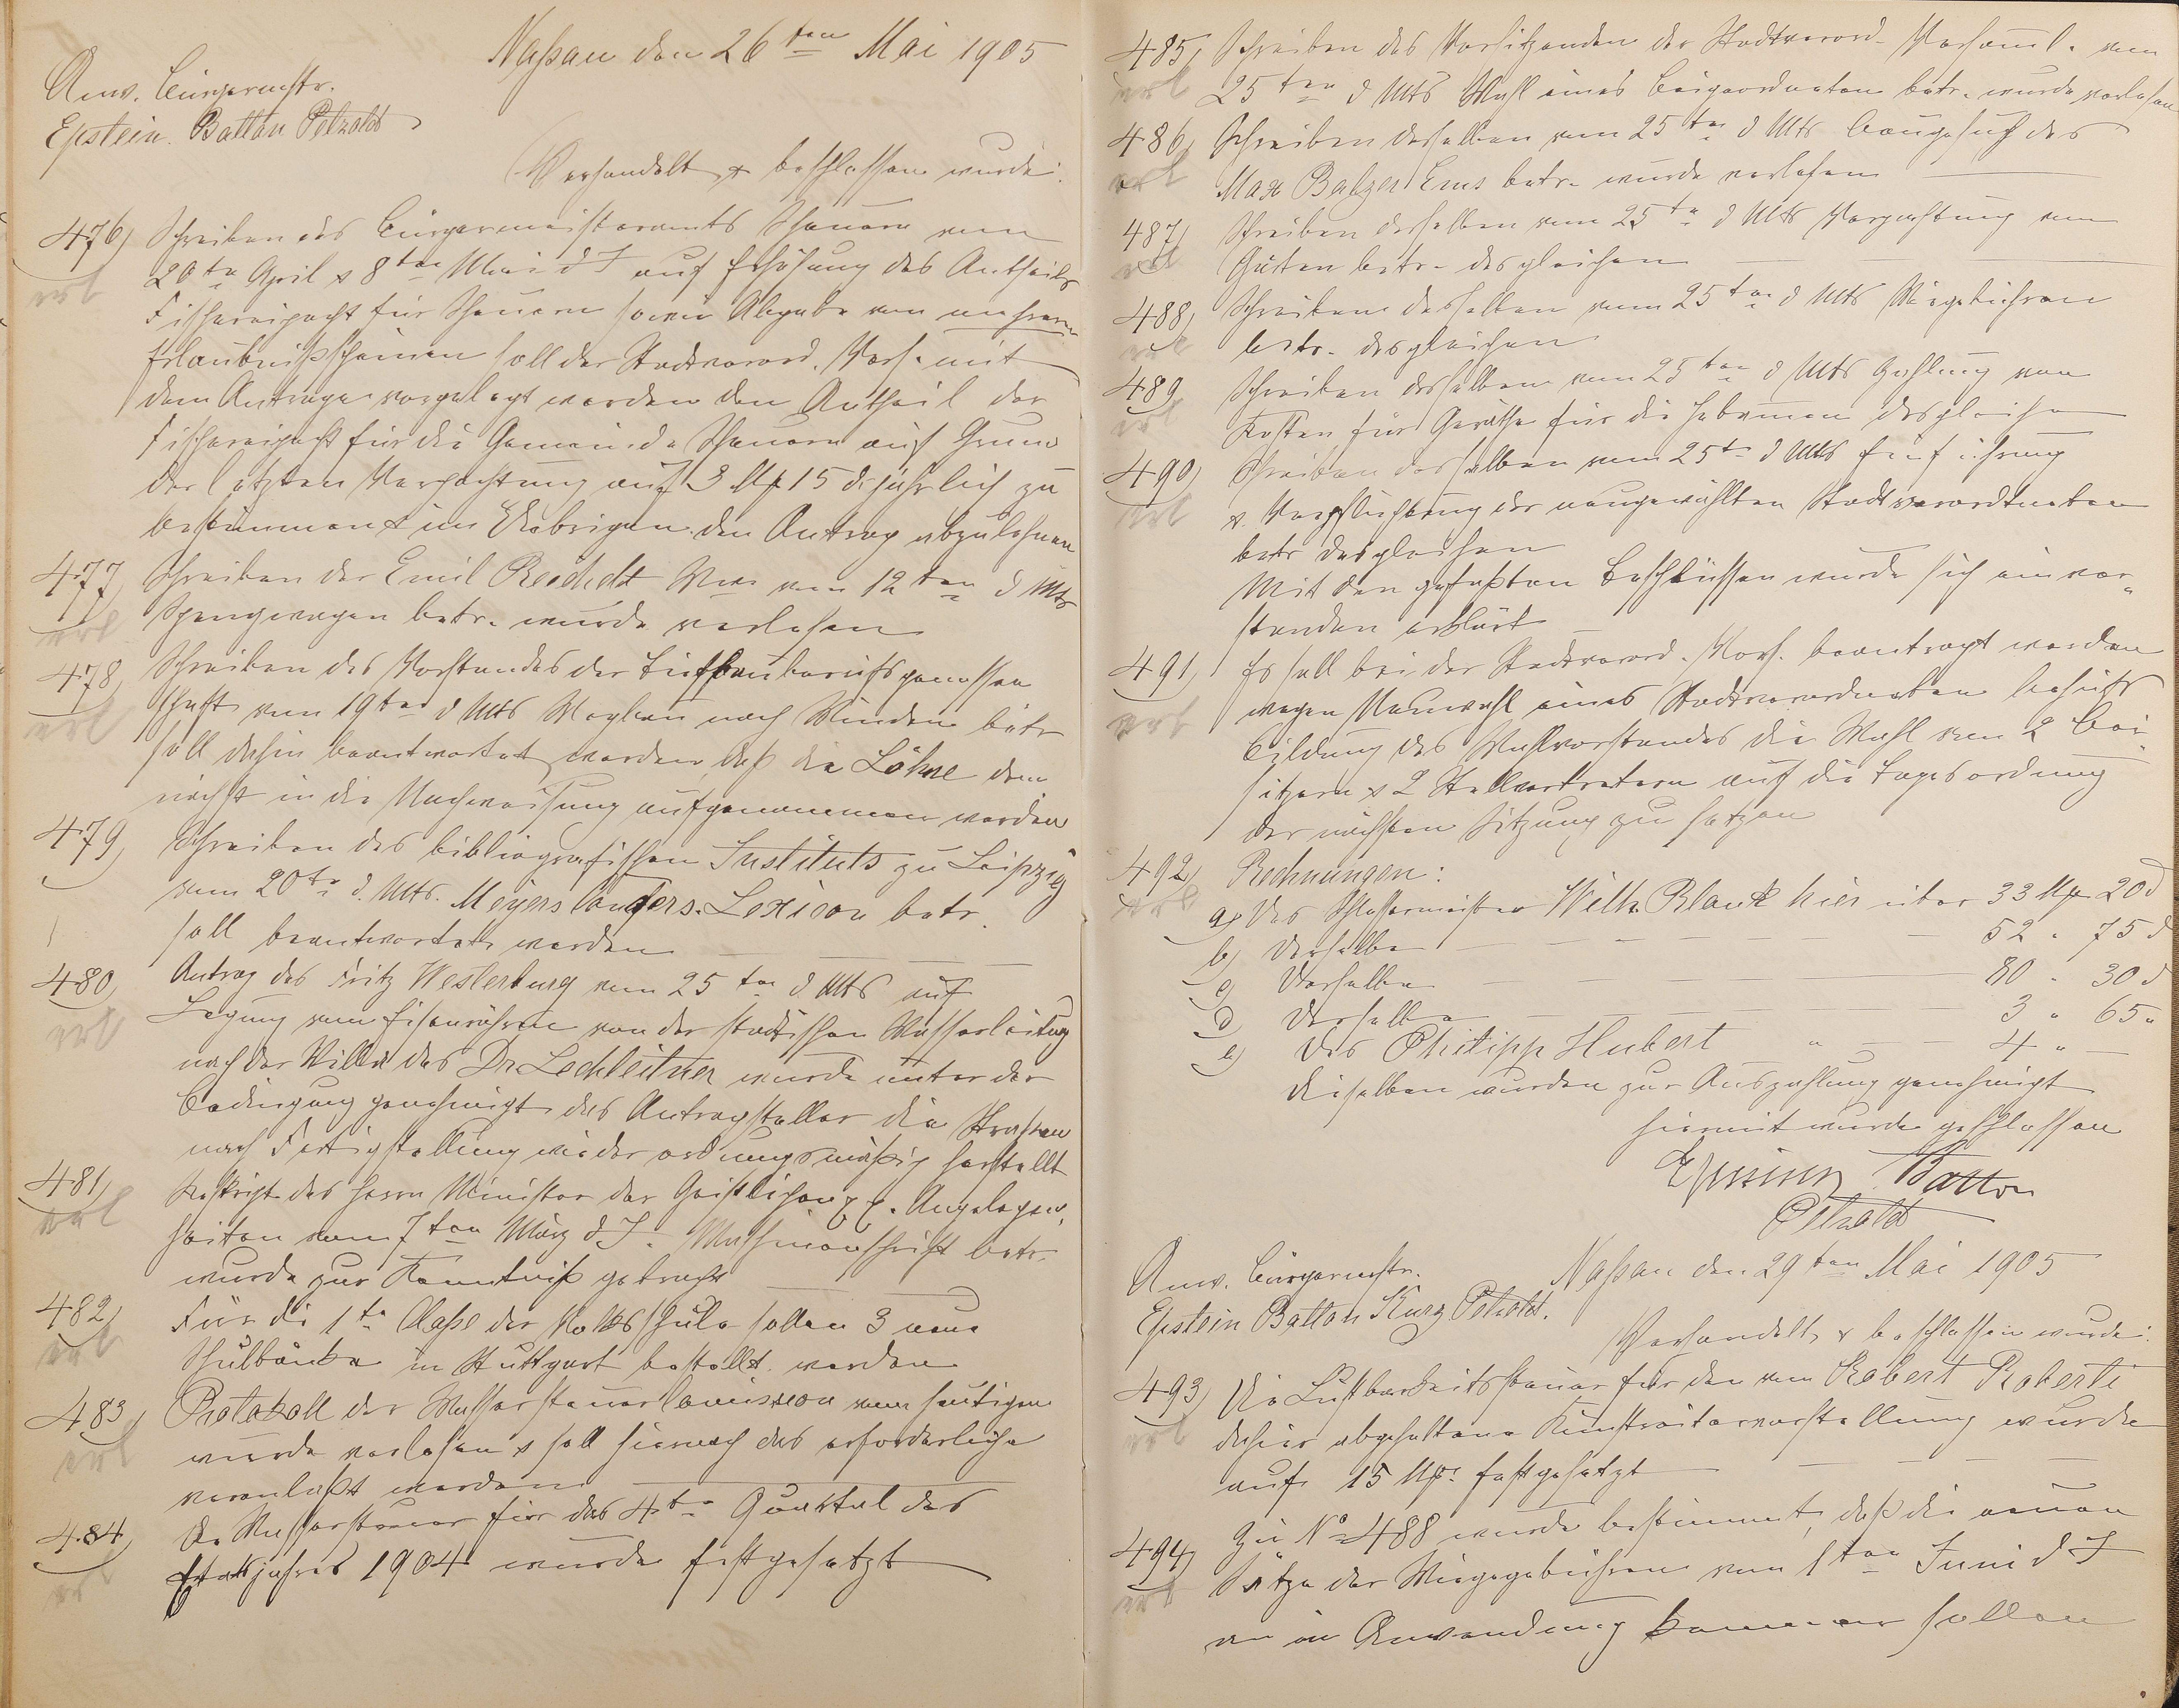 Naßau den 26ten Mai 1905
Anw. Bürgermstr.
Epstein. Batton Petzold
Verhandelt & beschlossen wurde:
476) Schreiben des Bürgermeisteramts Scheuern vom
20ten April & 8ten Mai d J auf Erhöhung des Antheils
Fischereipacht für Scheuern sowie Abgabe von mehreren
Erlaubnißscheinen soll der Stadtverord. Vers. mit
dem Antrage vorgelegt werden den Antheil der
Fischereipacht für die Gemeinde Scheuern auf Grund
der letzten Verpachtung auf 3 Mk 15 d jährlich zu
bestimmen & im Uebrigen den Antrag abzulehnen
erl
477 Schreiben der Emil Reichelt Wwe vom 12ten d Mts
Sprengwagen betr. wurde verlesen
erl
478) Schreiben des Vorstandes der Tiefbauberufsgenossen
schaft vom 19ten d Mts Wegbau nach Winden betr
soll dahin beantwortet werden, daß die Löhne dem
nächst in die Nachweisung aufgenommen werden
erl
479) Schreiben des bibliografischen Instituts zu Leipzig
vom 20ten d. Mts. Meyers Convers. Lexicon betr.
soll beantwortet werden
480) Antrag des Fritz Westerburg vom 25ten d Mts auf
Legung von Eisenröhren von der städtischen Wasserleitung
nach der Villa des Dr. Lechleitner wurde unter der
Bedingung genehmigt das Antragsteller die Strassen
nach Fertigstellung wieder ordnungsmäßig herstellt
erl
481) Reskript des Herrn Minister der Geistlichen pp. Angelegen,
heiten vom 7ten März d J. Maschinenschrift betr.
wurde zur Kenntniß gebracht
erl
482) Für die 1te Klaße der Volksschule sollen 3 neue
Schulbänke in Stuttgart bestellt werden
erl
483) Protokoll der Wassersteuerkomission vom heutigen
wurde verlesen & soll hiernach das erforderliche
veranlaßt werden
erl
484) Die Wassersteuer für das 4te Quartal des
Etatsjahres 1904 wurde festgesetzt
erl
485) Schreiben des Vorsitzenden der Stadtverord. Versaml. vom
25ten d Mts Wahl eines Beigeordneten betr. wurde verlesen
erl
486) Schreiben desselben vom 25ten d Mts Baugesuch des
Max Balzer Ems betr. wurde verlesen
erl
487) Schreiben desselben vom 25ten d Mts Verpachtung von
Güter betr. desgleichen
erl
488) Schreiben desselben vom 25ten d Mts Wiegebühren
betr. desgleichen
erl
489 Schreiben desselben vom 25ten d Mts Zahlung von
Kosten für Geräthe für die Hebammen desgleichen
erl
490) Schreiben desselben vom 25ten d Mts Einführung
& Verpflichtung der neugewählten Stadtverordneten
betr desgleichen
erl
Mit den gefaßten Beschlüssen wurde sich einver-
standen erklärt
491) Es soll bei der Stadtverord. Vers. beantragt werden
wegen Neuwahl eines Stadtverordneten behufs
Bildung des Wahlvorstandes die Wahl von 2 Bei
sitzern & 2 Stellvertretern auf die Tagesordnung
der nächsten Sitzung zu setzen
erl
492) Rechnungen:
a) des Schlossermeister Wilh. Blank hier über 33 Mk 20 d
b) Derselbe 52 " 75 d
c) Derselbe 80 " 30 d
d) Derselbe 3 " 65 "
e) des Philipp Hubert " 4 " —
dieselben wurden zur Auszahlung genehmigt
erl
hiermit wurde geschlossen
Epstein Batton
Petzold
Naßau den 29ten Mai 1905
Anw. Bürgermstr.
Epstein Batton Kurz Petzold.
Verhandelt & beschlossen wurde:
493) Die Lustbarkeitssteuer für den von Robert Roberti
dahier abgehaltene Kunstreitervorstellung wurde
auf 15 Mk. festgesetzt
erl
494) Zu No 488 wurde bestimmt, daß die neuen
Sätze der Wiegegebühren vom 1ten Juni d J
an in Anwendung kommen sollen
erl